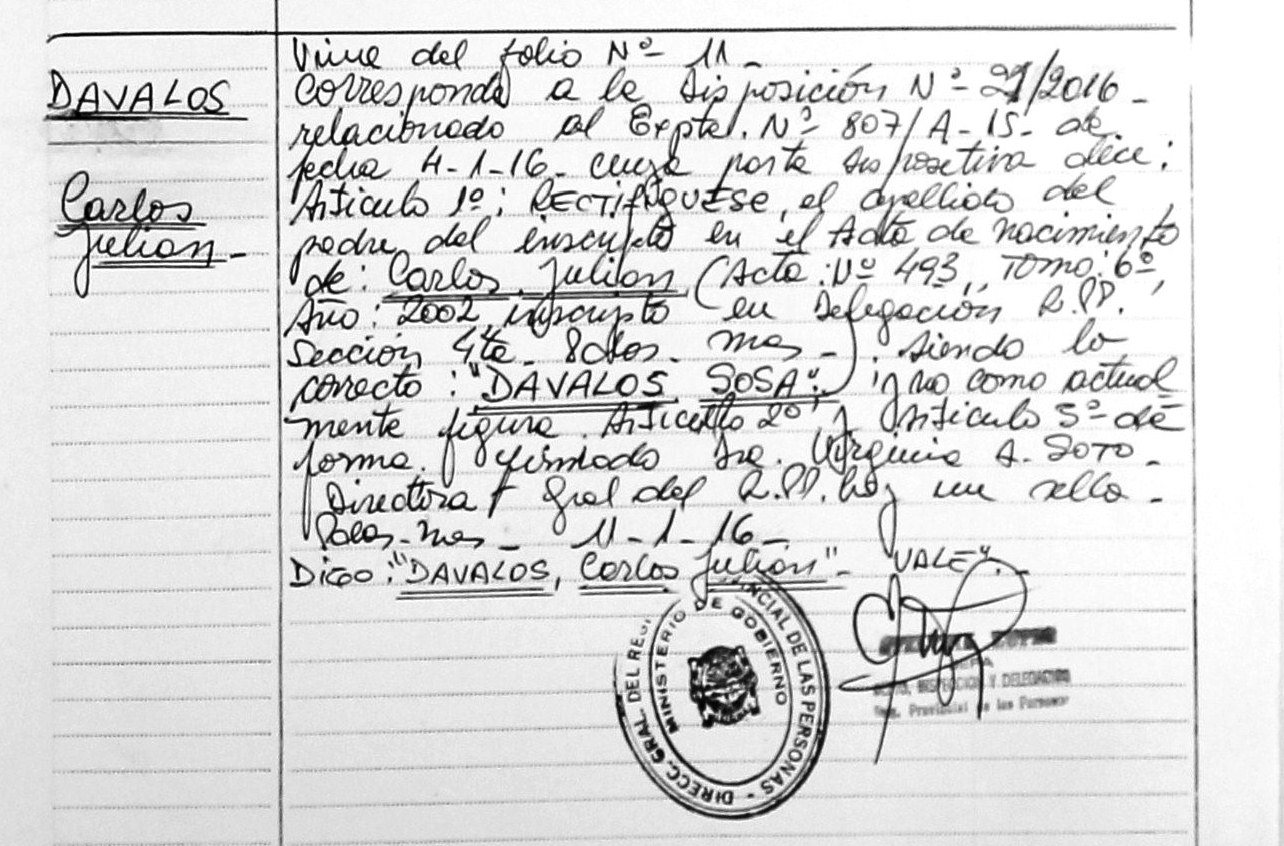 DAVALOS
Carlos
Julian -
Viene del folio Nº 11 -
Corresponde a la Disposición Nº 21/2016 -
relacionado al Expte. Nº 807/A-15- de
fecha 4-1-16- cuya parte dispositiva dice:
Articulo 1º: RECTIFIQUESE, el apellido del
padre del inscripto en el Acta de nacimiento
de: Carlos Julian (Acta: Nº 493, Tomo: 6º,
Año: 2002 inscripto en Delegación R.PP.
Sección 4ta - Pdas - Mnes -). siendo lo
correcto: "DAVALOS SOSA". y no como actual
mente figura. Articulo 2º y Articulo 3º de
forma. Firmado Dra. Virginia A. SOTO -
Directora Gral del R.PP. hay un sello -
11-1-16-
Digo: "DAVALOS, Carlos Julian" - VALE". -
DIRECC. GRAL. DEL REGI NCIAL DE LAS PERSONAS -
MINISTERIO DE GOBIERNO
INSPECCION Y DELEGACION
Provincial de las Personas